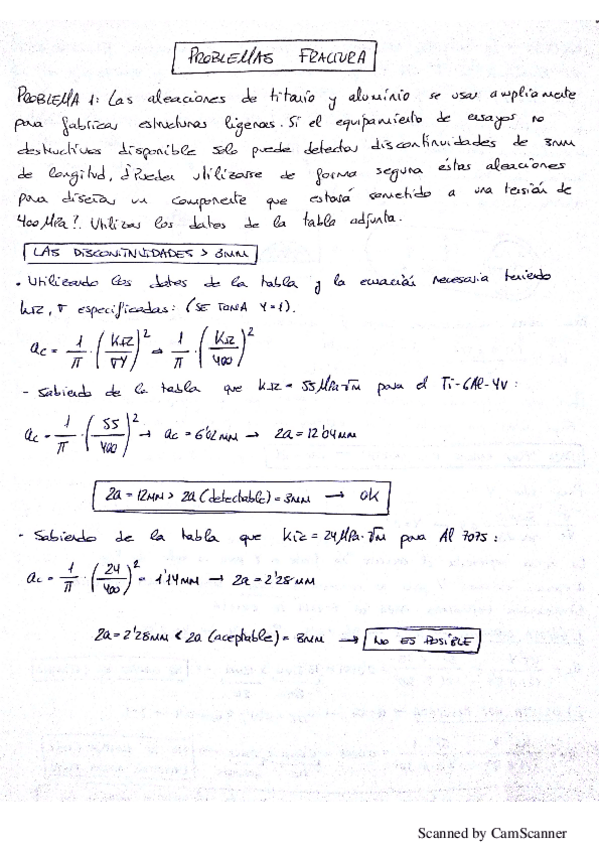 PROBLEMAS FRACTURA
PROBLEMA 1: Las aleaciones de titanio y aluminio se usan ampliamente
para fabricar estructuras ligeras. Si el equipamiento de ensayos no
destructivos disponible solo puede detectar discontinuidades de 3mm
de longitud, ¿Pueden utilizarse de forma segura éstas aleaciones
para diseñar un componente que estará sometido a una tensión de
400 MPa?. Utilizar los datos de la tabla adjunta.
LAS DISCONTINUIDADES > 3MM
• Utilizando los datos de la tabla y la ecuación necesaria teniendo
KIC, σ especificadas: (SE TOMA Y=1).
ac = 1/π · (KIC/σY)² → 1/π · (KIC/400)²
- Sabiendo de la tabla que KIC = 55 MPa·√m para el Ti-6Al-4V:
ac = 1/π · (55/400)² → ac = 6'02 MM → 2a = 12'04 MM
2a = 12MM > 2a (detectable) = 3MM → OK
- Sabiendo de la tabla que KIC = 24 MPa·√m para Al 7075:
ac = 1/π · (24/400)² = 1'14 MM → 2a = 2'28 MM
2a = 2'28MM < 2a (aceptable) = 3MM → NO ES POSIBLE
Scanned by CamScanner